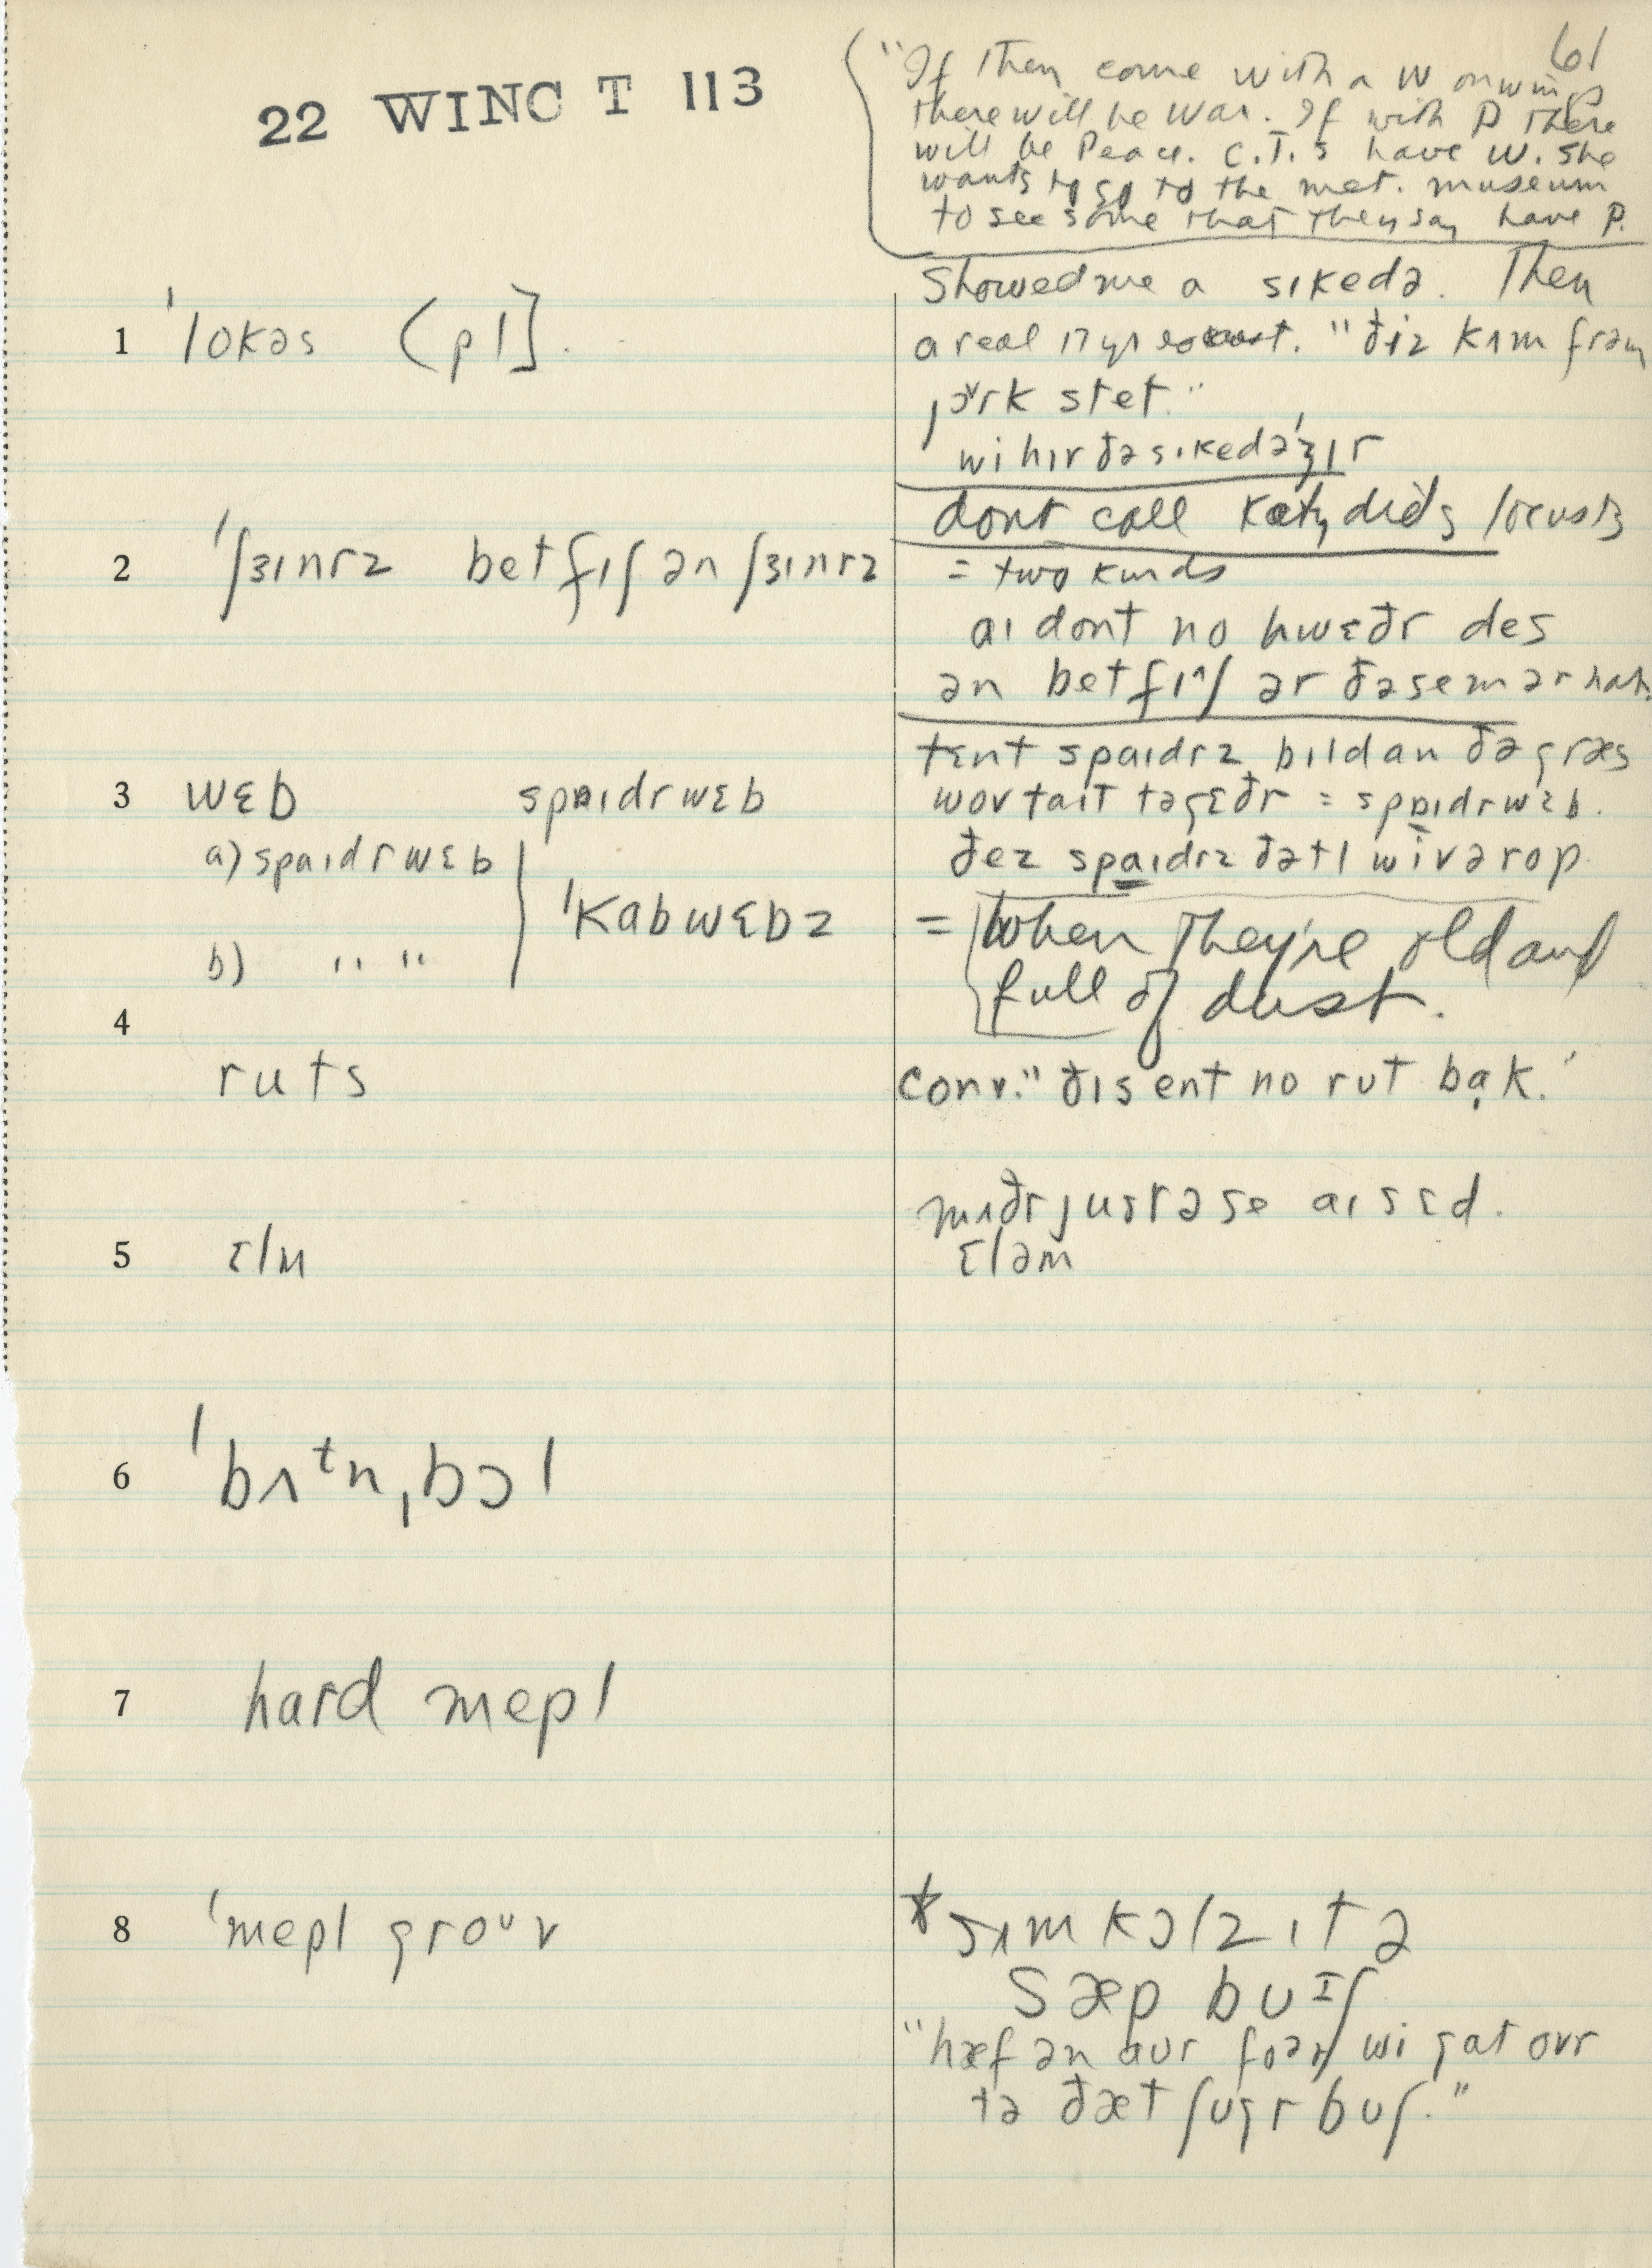 61
22 WINC T 113
"If they come with a W on wings
there will be War. If with P there
will be Peace. C.T.s have W. She
wants to go to the met. museum
to see some that they say have P.
1 ˈlokəs (pl].
Showed me a sɪkedə. Then
a real 17 yr locust. "ðiz kʌm frəm
jɔrk stet."
wi hɪr ðə sɪkedə ʒɪr
2 ˈʃɜɪnrz betfɪʃ ən ʃɜɪnrz
dont call katydids locusts
= two kinds
aɪ dont no hwɛðr des
ən betfɪʃ ər ðə sem ər nat.
3 wɛb spɒɪdrwɛb
a) spaɪdrwɛb
b) " "
ˈkabwɛbz
tɛnt spaɪdrz bɪld an ðə græs
wov taɪt təgɛðr = spɒɪdrwɛb.
ðez spaɪdrz ðətl wiv ə rop
= When they're old and
full of dust.
4 ruts
conv. "ðɪs ent no rut bạk."
5 ɛlm
mʌðr justə se aɪ sɛd.
ɛləm
6 ˈbʌᵗn,bɔl
7 hard mepl
8 ˈmepl groᵘv
* sʌm kɔlz ɪt ə
sæp buᶦʃ
"hæf ən aur wi gat ovr
tə ðæt ʃugr buʃ."